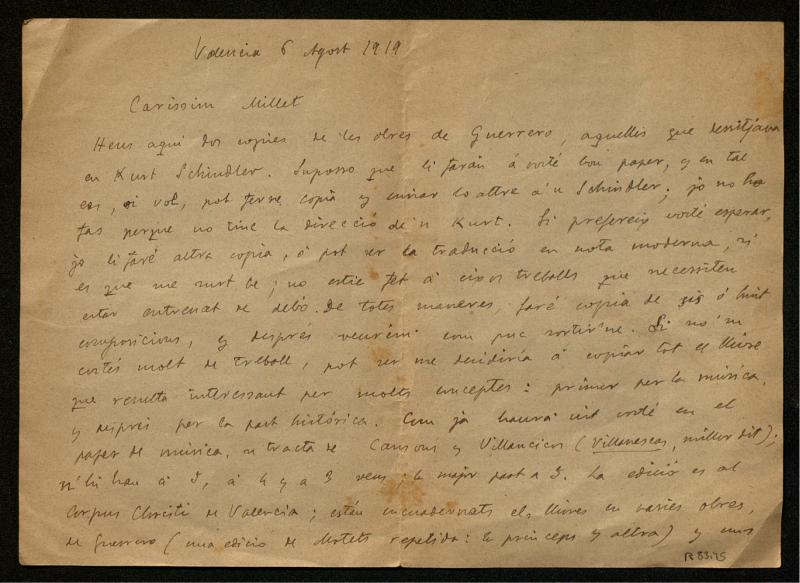 Valencia 6 Agost 1919
Carissim Millet
Heus aquí dos copies de les obres de Guerrero, aquelles que desitjava
en Kurt Schindler. Suposso que li farán á vosté bon paper, y en tal
cas, si vol, pot ferne copia y enviar lo altre a'n Schindler; jo no ho
fas perque no tinc la direcció de'n Kurt. Si prefereix vosté esperar,
jo li faré altra copia, ó pot ser la traducció en nota moderna, si
es que me surt be; no estic fet á eixos treballs que necessiten
estar entrenat de debó. De totes maneres, faré copia de sis ó huit
composicions, y després veurém com puc sortir'ne. Si no'm
costés molt de treball, pot ser me decidiría á copiar tot el llibre
que resulta interessant per molts conceptes: primer per la música,
y després per la part histórica. Com já haurá vist vosté en el
paper de música, se tracta de Cansons y Villancicos (Villanescas, millor dit);
n'hi han á 5, á 4 y a 3 veus; la major part a 3. La edició es al
Corpus Christi de Valencia; están encuadernats els llibres en varies obres,
de Guerrero (una edició de Motets repetida: la princeps y altra) y uns
R 83.95